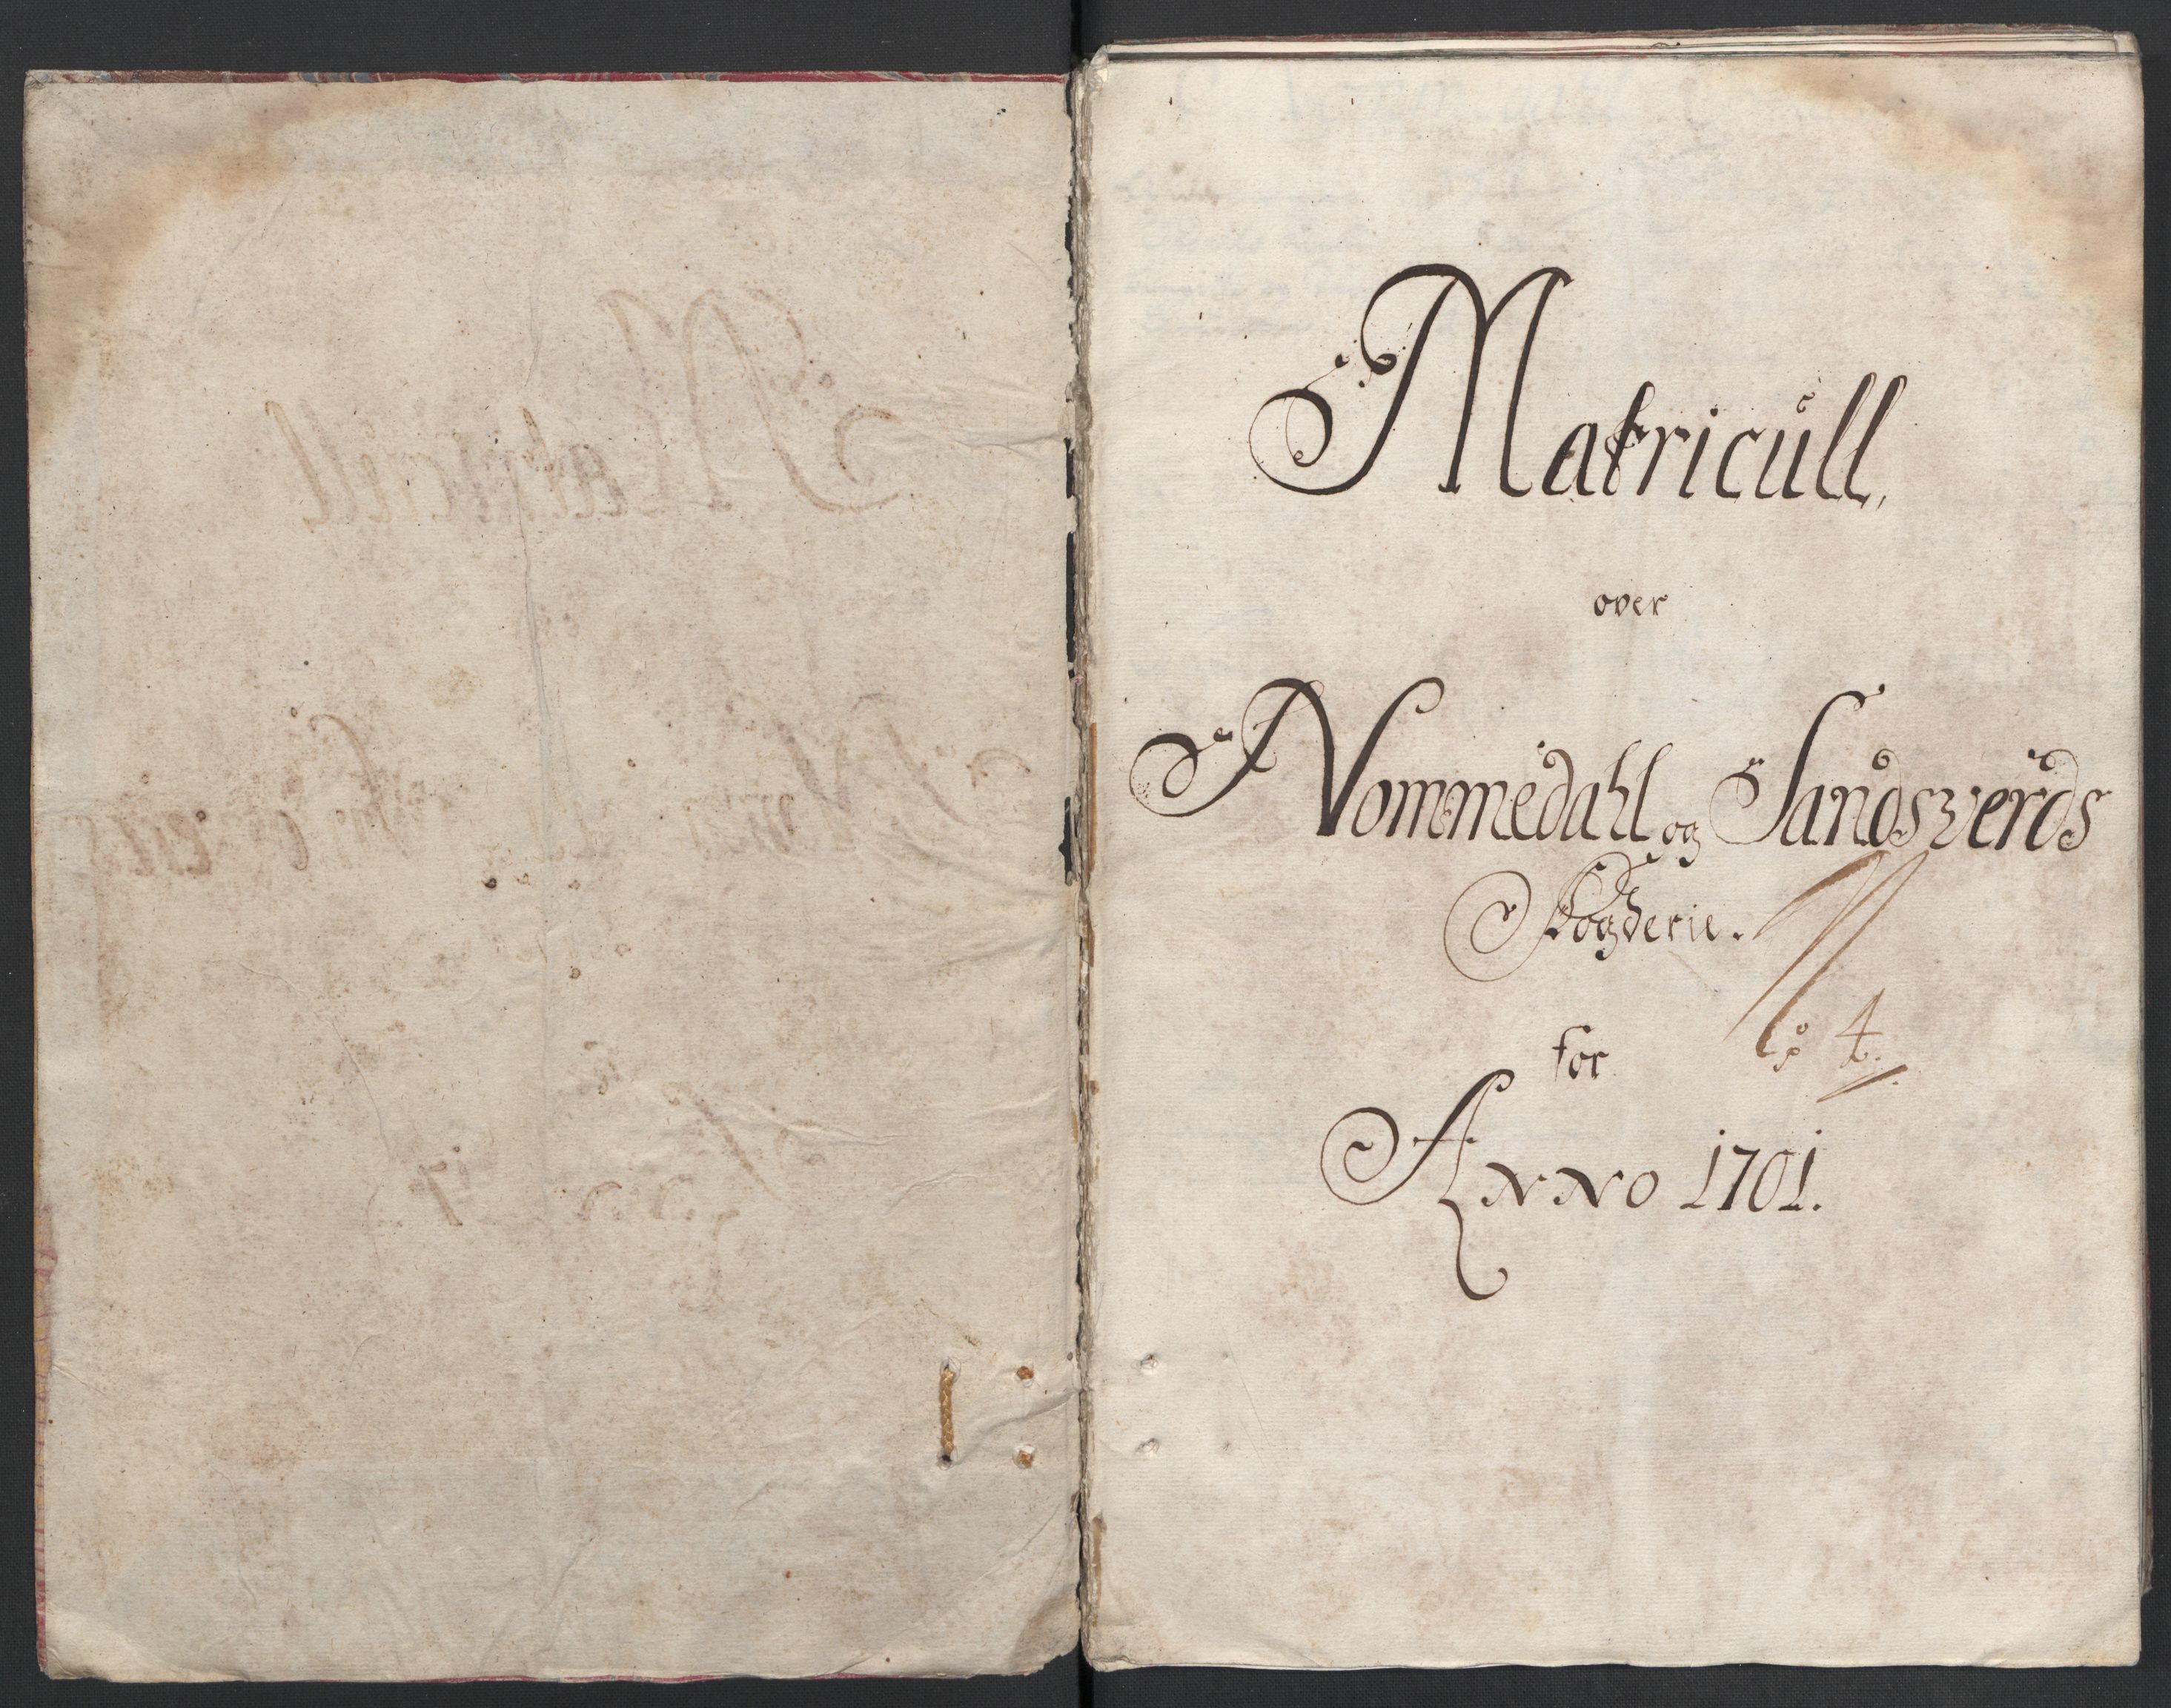 Matricull
over
Nommedahl og Sandsverds
Fogderie.
for
Anno 1701.